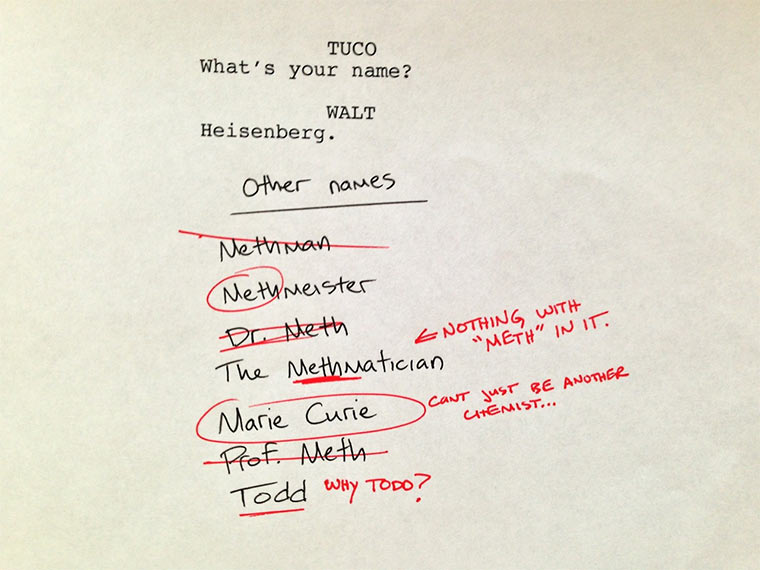 TUCO
What's your name?
WALT
Heisenberg.
Other names
Methman
Methmeister
Dr. Meth
← NOTHING WITH
"METH" IN IT.
The Methmatician
Marie Curie
CANT JUST BE ANOTHER
CHEMIST...
Prof. Meth
Todd WHY TODD?